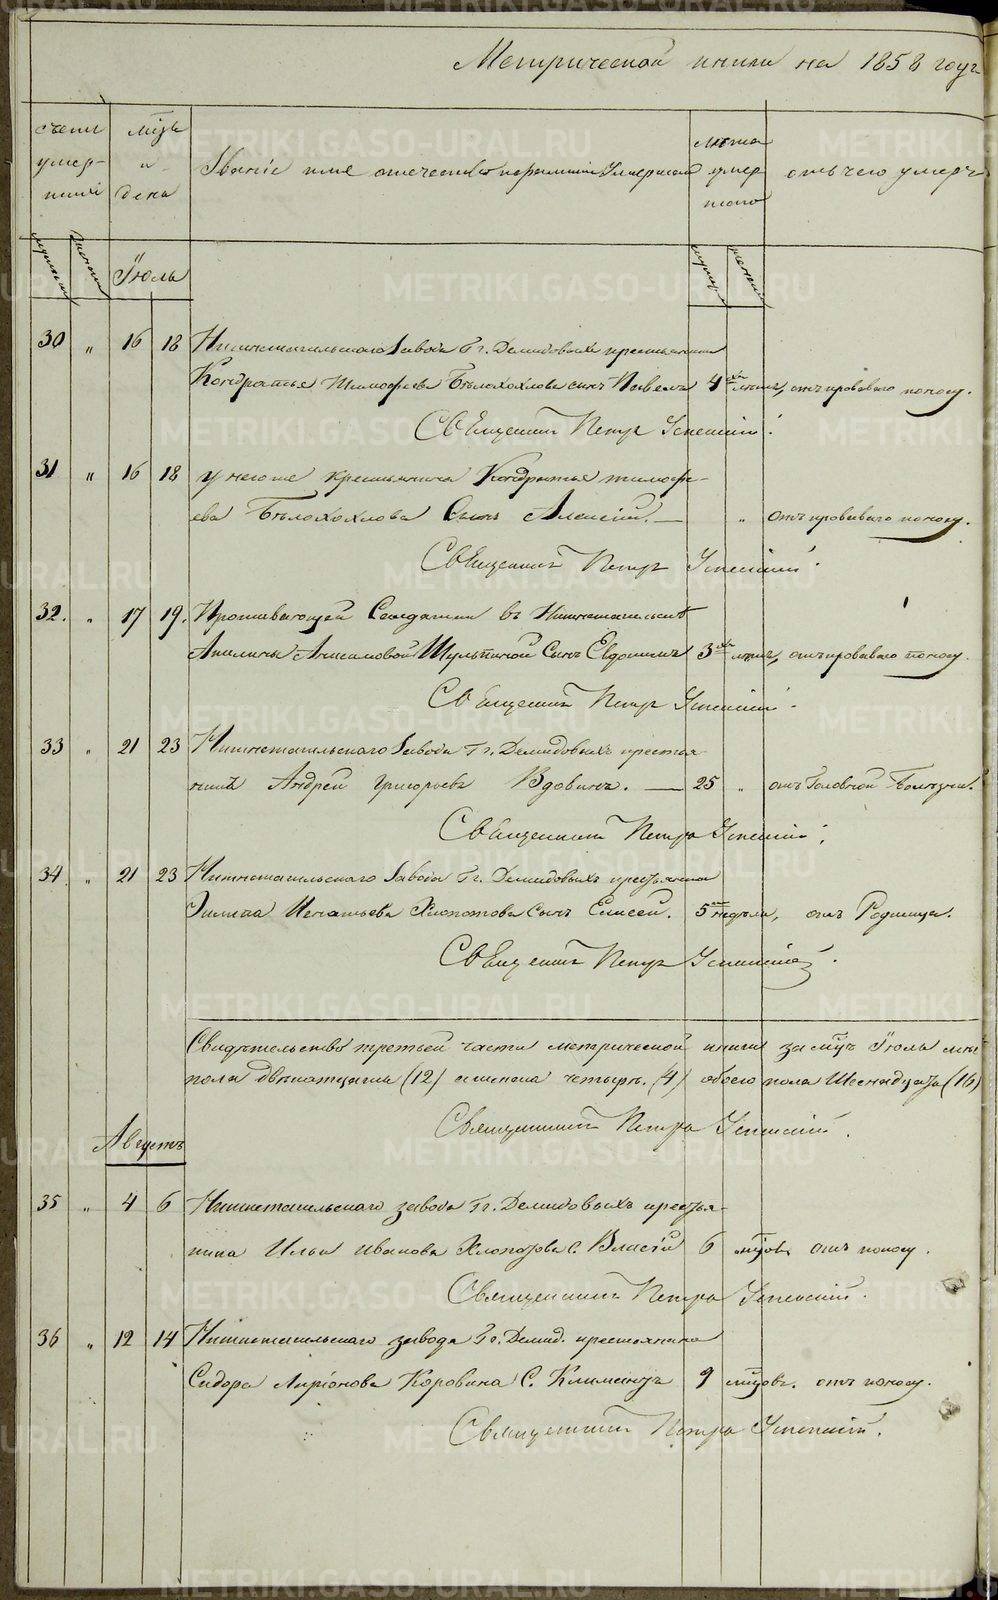 Метрической книги на 1858 годъ
счетъ умер-шихъ
мцъ и день
Званіе имя отчество и фамилія Умершаго
лѣта умер шаго
отъ чего умеръ
мужеска
женска
Іюль
мужеск
женск
30 „ 16 18 Нижнетагильскаго Завода Гг. Демидовыхъ крестьянина
Кондратья Тимофеева Бѣлохохлова сынъ Павелъ 4хъ лѣтъ, отъ кроваваго поносу.
Священникъ Петръ Успенскій.
31 „ 16 18 у него же крестьянина Кондратья тимофе-
ева Бѣлохохлова Сынъ Алексій. — „ отъ кроваваго поносу.
Священникъ Петръ Успенскій.
32. „ 17 19. Проживающей Солдатки въ Нижнетагильскѣ
Акилины Анисимовой Сынъ Евдокимъ 3хъ лѣтъ, отъ кроваваго поносу.
Священникъ Петръ Успенскій.
33 „ 21 23 Нижнетагильскаго Завода Гг. Демидовыхъ крестья
нинъ Андрей Григорьевъ Вдовинъ. — 25 „ отъ Головной Болѣзни.
Священникъ Петръ Успенскій.
34 „ 21 23 Нижнетагильскаго Завода Гг. Демидовыхъ крестьянина
Игнатьева Хлопотова Сынъ Елисей. 5 недѣль, отъ Родимца.
Священникъ Петръ Успенскій.
Свидѣтельство третьей части метрической книги за мцъ Іюль муж
пола двѣнатцать (12) а женска четыре. (4) обоего пола Шеснадцать (16)
Священникъ Петръ Успенскій.
Августъ
35 „ 4 6 Нижнетагильскаго завода Гг. Демидовыхъ крестья-
нина Ильи Иванова Хлопотова с. Власій 6 мцовъ отъ поносу.
Священникъ Петръ Успенскій.
36 „ 12 14 Нижнетагильскаго завода Гг. Демид. крестьянина
Сидора Ларіонова Коровина С. Климентъ 9 мцовъ. отъ поносу.
Священникъ Петръ Успенскій.
METRIKI.GASO-URAL.RU